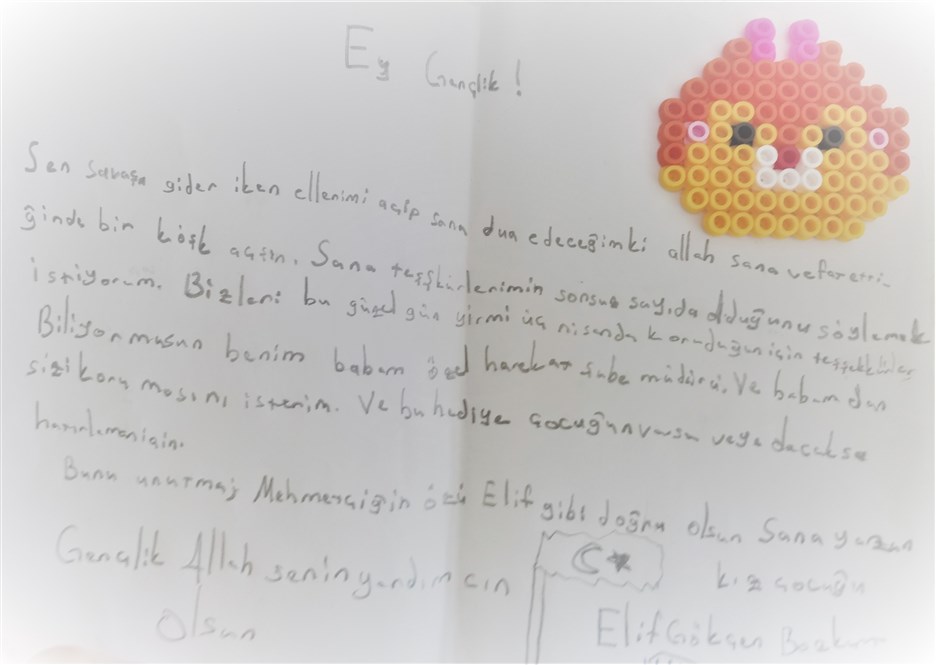 Ey Gençlik!
Sen savaşa gider iken ellerimi açıp sana dua edeceğimki allah sana vefaretti-
ğinde bir köşk açtın. Sana teşşkürlerimin sonsuz sayıda olduğunu söylemek
istiyorum. Bizleri bu güzel gün yirmi üç nisanda koruduğun için teşşekkürler
Biliyormusun benim babam özel harekat şube müdürü. Ve babamdan
sizi korumasını isterim. Ve bu hediye çocuğun varsa veya olacaksa
hatırlaman için.
Bunu unutma; Mehmetçiğin özü Elif gibi doğru olsun Sana yazan
Gençlik Allah senin yardımcın
olsun
kız çocuğu
Elif Gökçen